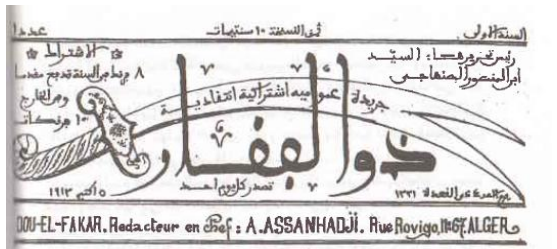 السنة الاولى ثمن النسخة ١٠ سنتيمات عدد ١
رئيس تحريرها: السيد
ابن المنصور الصنهاجي
الاشتراك
٨ فرنك في السنة تدفع مقدما
وفي الخارج
١٠ فرنكات
جريدة عمومية اشتراكية انتقادية
ذو الفقار
تصدر كل يوم احد
١٣٣١
٥ اكتبر ١٩١٣
DOU-EL-FAKAR. Redacteur en Chef: A. ASSANHADJI. Rue Rovigo, N°67. ALGER